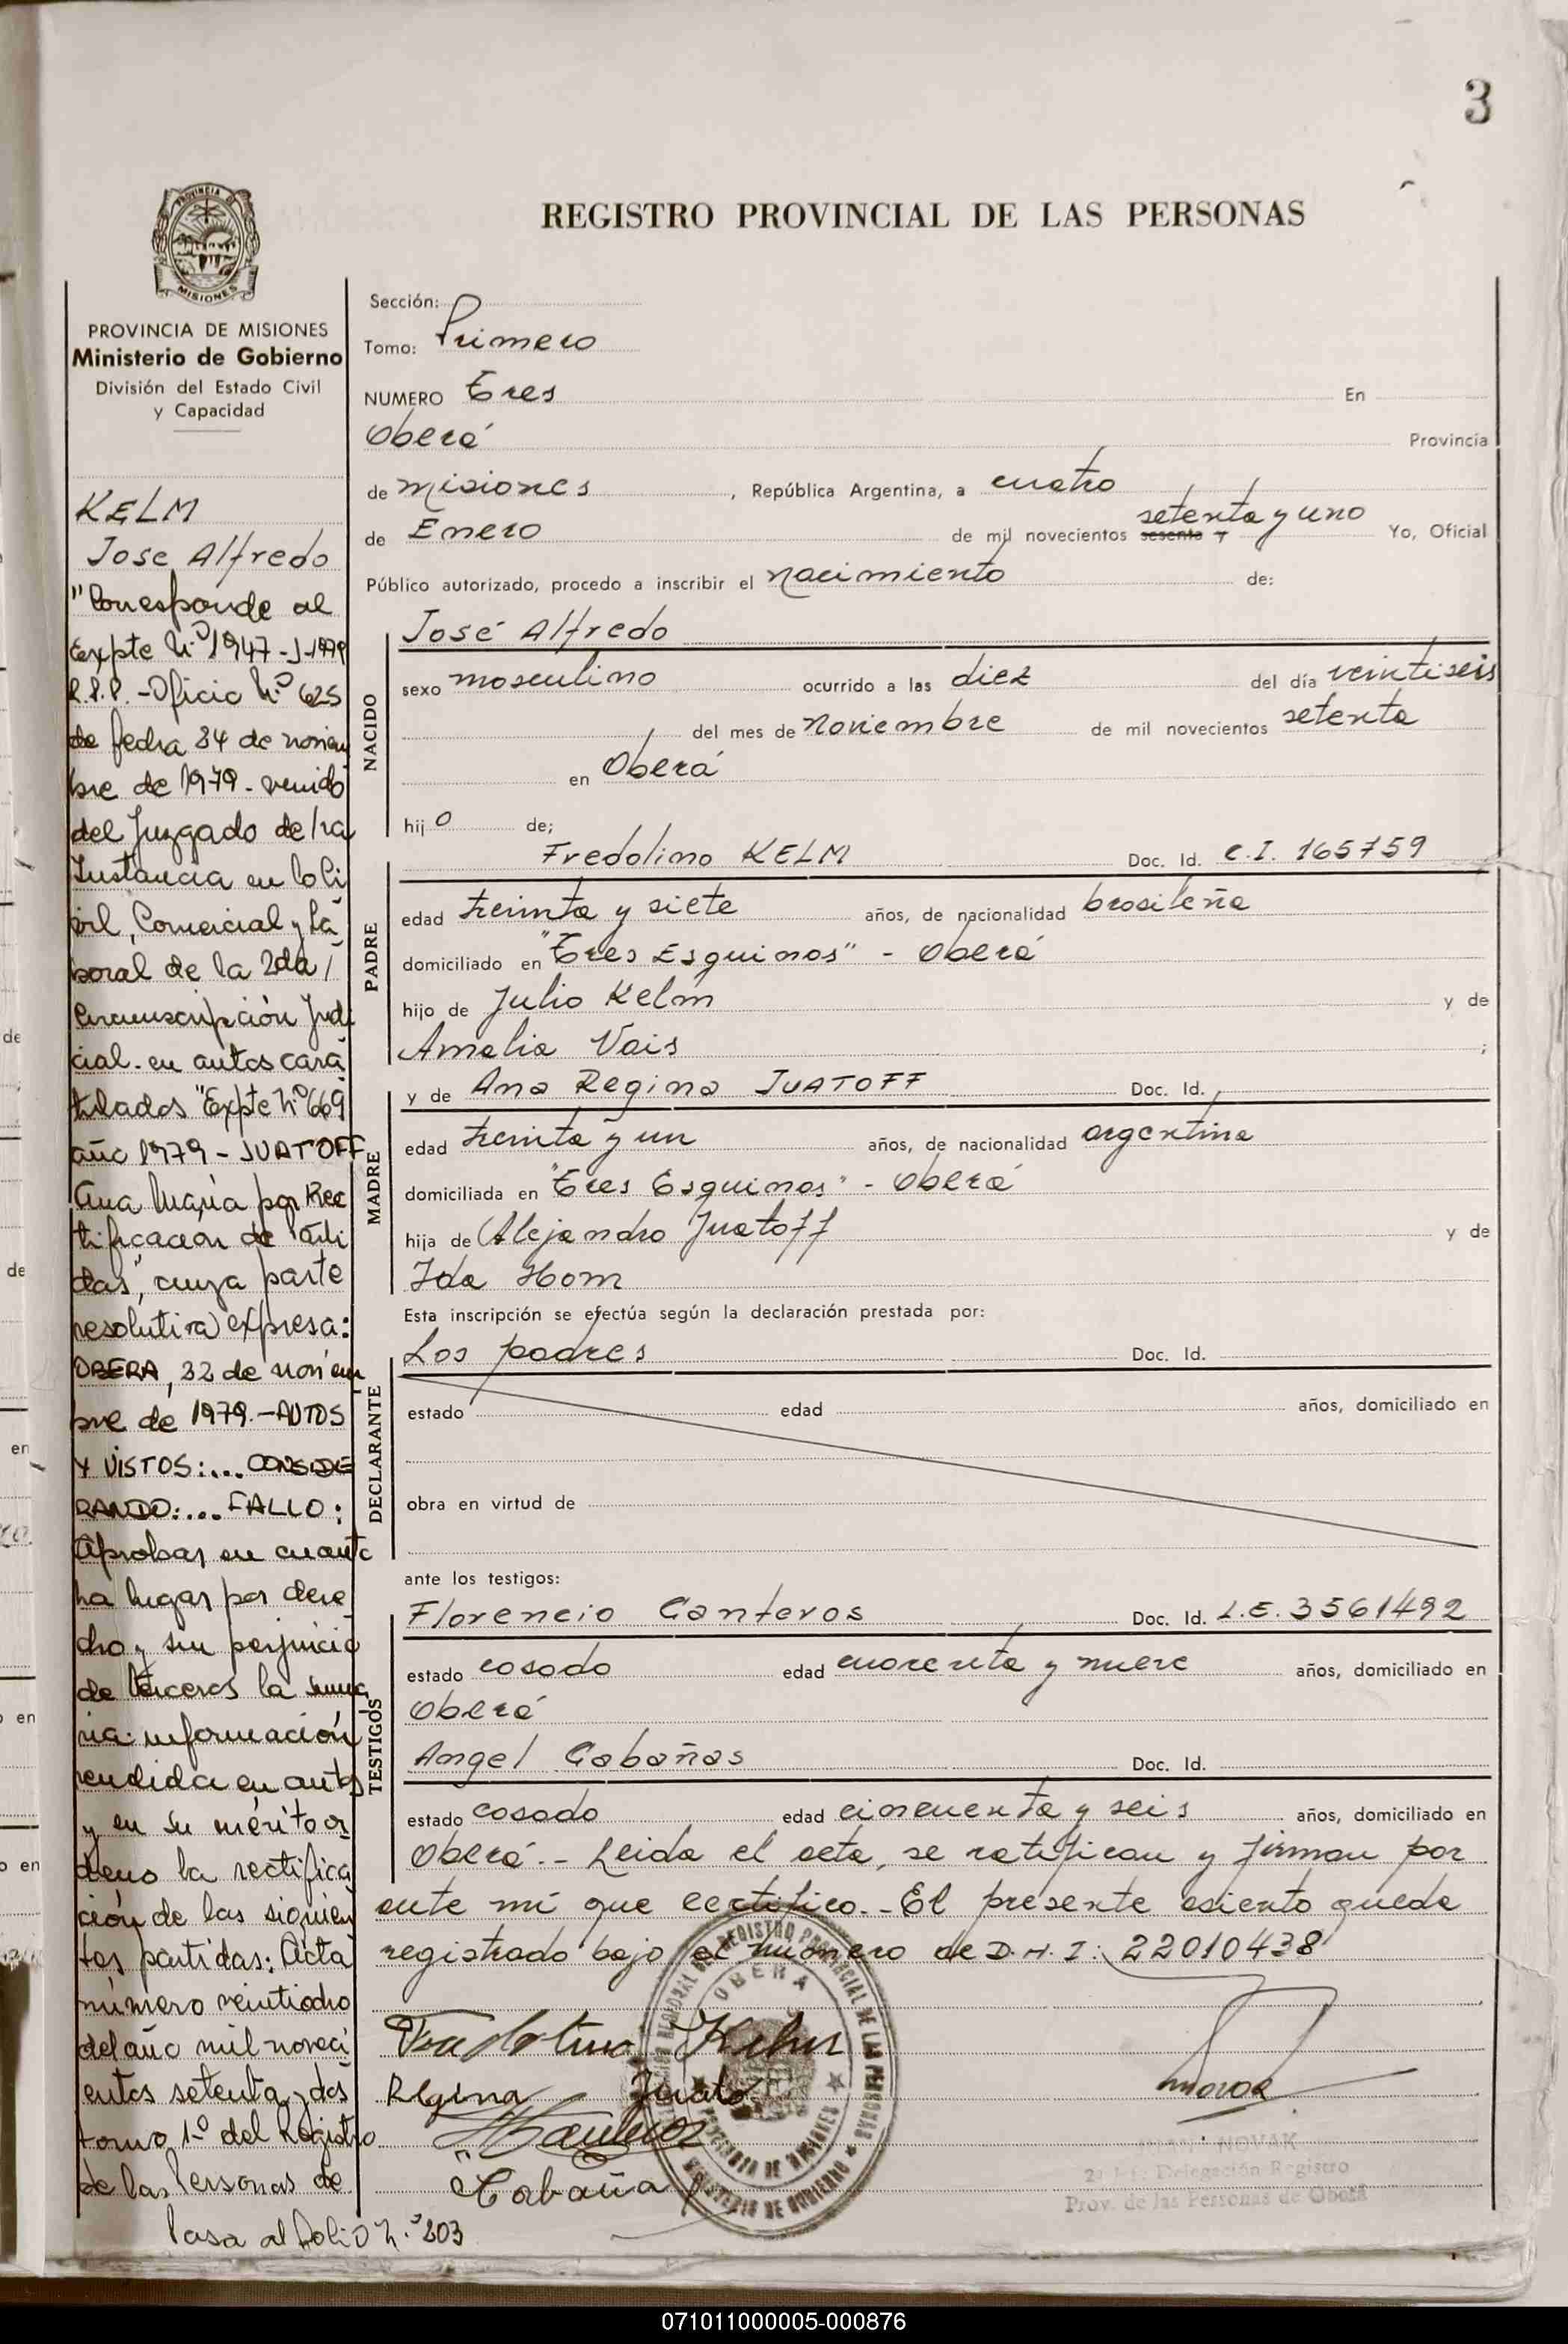 3
REGISTRO PROVINCIAL DE LAS PERSONAS
MISIONES
PROVINCIA DE MISIONES
Ministerio de Gobierno
División del Estado Civil
y Capacidad
KELM
Jose Alfredo
"Corresponde al
Expte N.º 1947-J-1979
R.P.P. - Oficio N.º 625
de fecha 24 de noviem
bre de 1979 - venido
del Juzgado de 1ra
Instancia en lo Ci
vil, Comercial y La
boral de la 2da /
Circunscripción Judi
cial - en autos cara
tulados "Expte Nº 669
año 1979 - JUATOFF
Ana María por Rec
tificacion de Parti
das", cuya parte
resolutiva expresa:
OBERA, 22 de noviem
bre de 1979.-AUTOS
Y VISTOS:... CONSIDE
RANDO:... FALLO:
Aprobar en cuanto
ha lugar por dere
cho y sin perjuicio
de terceros la suma
ria informacion
rendida en autos
y en su mérito or
deno la rectifica
ción de las siguien
tes partidas: Acta
número veintiocho
del año mil noveci
entos setenta y dos
tomo 1º del Registro
de las Personas de
Pasa al folio N.º 203
Sección:
Tomo: Primero
NUMERO Tres En
Oberá Provincia
de Misiones, República Argentina, a cuatro
de Enero de mil novecientos sesenta y setenta y uno Yo, Oficial
Público autorizado, procedo a inscribir el nacimiento de:
NACIDO
José Alfredo
sexo masculino ocurrido a las diez del día veintiseis
del mes de Noviembre de mil novecientos setenta
en Oberá
hijo de;
PADRE
Fredolino KELM Doc. Id. C.I. 165759
edad treinta y siete años, de nacionalidad brasileña
domiciliado en "Tres Esquinas" - Oberá
hijo de Julio Kelm y de
Amalia Vais ;
MADRE
y de Ana Regina JUATOFF Doc. Id.
edad treinta y un años, de nacionalidad argentina
domiciliada en "Tres Esquinas" - Oberá
hija de Alejandro Juatoff y de
Ida Hom
Esta inscripción se efectúa según la declaración prestada por:
DECLARANTE
Los padres Doc. Id.
estado edad años, domiciliado en
obra en virtud de
ante los testigos:
TESTIGOS
Florencio Canteros Doc. Id. L.E. 3561492
estado casado edad cuarenta y nueve años, domiciliado en
Oberá
Angel Cabañas Doc. Id.
estado casado edad cincuenta y seis años, domiciliado en
Oberá.- Leida el acta, se ratifican y firman por
ante mí que certifico.- El presente asiento queda
registrado bajo el número de D.N.I: 22010438
Kelm
Regina Juato
Cabaña
OBERA
NOVAK
2º Jefe Delegación Registro
Prov. de las Personas de Oberá
071011000005-000876